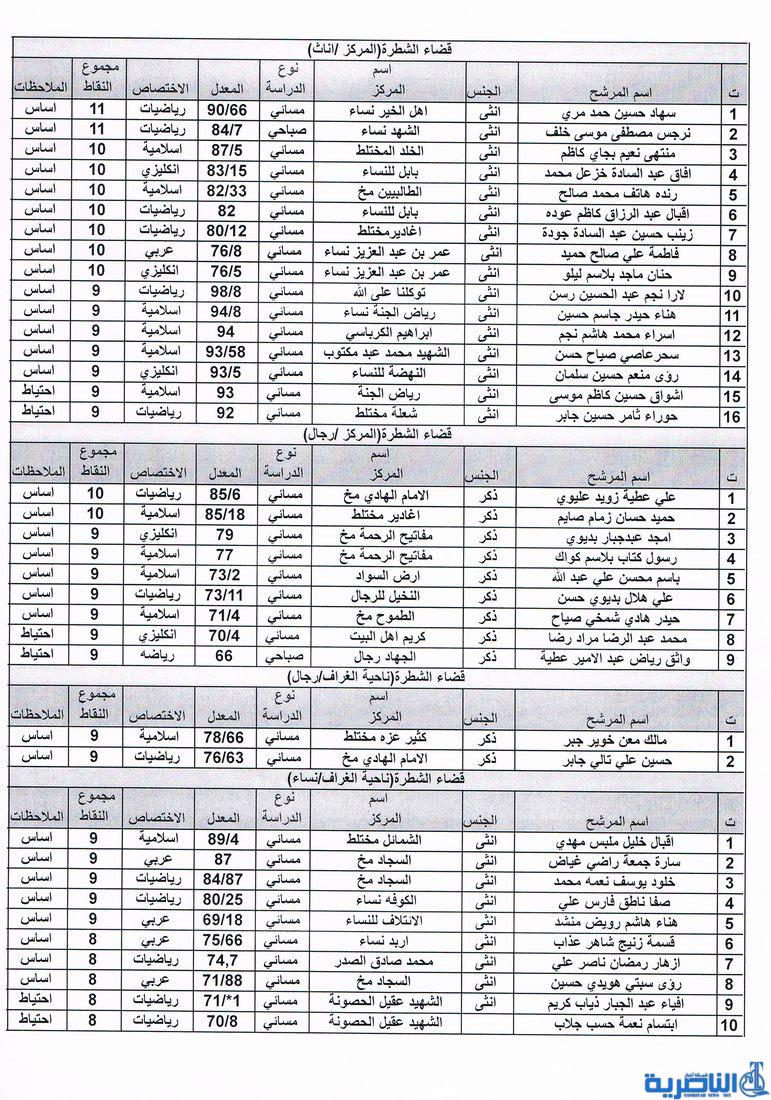 قضاء الشطرة(المركز /اناث)
ت اسم المرشح الجنس اسم المركز نوع الدراسة المعدل الاختصاص مجموع النقاط الملاحظات
1 سهاد حسين حمد مري انثى اهل الخير نساء مسائي 90/66 رياضيات 11 اساس
2 نرجس مصطفى موسى خلف انثى الشهد نساء صباحي 84/7 رياضيات 11 اساس
3 منتهى نعيم بجاي كاظم انثى الخلد المختلط مسائي 87/5 اسلامية 10 اساس
4 افاق عبد السادة خزعل محمد انثى بابل للنساء مسائي 83/15 انكليزي 10 اساس
5 رنده هاتف محمد صالح انثى الطالبيين مخ مسائي 82/33 اسلامية 10 اساس
6 اقبال عبد الرزاق كاظم عوده انثى بابل للنساء مسائي 82 رياضيات 10 اساس
7 زينب حسين عبد السادة جودة انثى اغاديرمختلط مسائي 80/12 رياضيات 10 اساس
8 فاطمة علي صالح حميد انثى عمر بن عبد العزيز نساء مسائي 76/8 عربي 10 اساس
9 حنان ماجد بلاسم ليلو انثى عمر بن عبد العزيز نساء مسائي 76/5 انكليزي 10 اساس
10 لارا نجم عبد الحسين رسن انثى توكلنا على الله مسائي 98/8 رياضيات 9 اساس
11 هناء حيدر جاسم حسين انثى رياض الجنة نساء مسائي 94/8 اسلامية 9 اساس
12 اسراء محمد هاشم نجم انثى ابراهيم الكرباسي مسائي 94 اسلامية 9 اساس
13 سحرعاصي صباح حسن انثى الشهيد محمد عبد مكتوب مسائي 93/58 اسلامية 9 اساس
14 رؤى منعم حسين سلمان انثى النهضة للنساء مسائي 93/5 انكليزي 9 اساس
15 اشواق حسين كاظم موسى انثى رياض الجنة مسائي 93 اسلامية 9 احتياط
16 حوراء ثامر حسين جابر انثى شعلة مختلط مسائي 92 رياضيات 9 احتياط
قضاء الشطرة(المركز /رجال)
ت اسم المرشح الجنس اسم المركز نوع الدراسة المعدل الاختصاص مجموع النقاط الملاحظات
1 علي عطية زويد عليوي ذكر الامام الهادي مخ مسائي 85/6 رياضيات 10 اساس
2 حميد حسان زمام صايم ذكر اغادير مختلط مسائي 85/18 اسلامية 10 اساس
3 امجد عبدجبار بديوي ذكر مفاتيح الرحمة مخ مسائي 79 انكليزي 9 اساس
4 رسول كتاب بلاسم كواك ذكر مفاتيح الرحمة مخ مسائي 77 اسلامية 9 اساس
5 باسم محسن علي عبد الله ذكر ارض السواد مسائي 73/2 اسلامية 9 اساس
6 علي هلال بديوي حسن ذكر النخيل للرجال مسائي 73/11 رياضيات 9 اساس
7 حيدر هادي شمخي صياح ذكر الطموح مخ مسائي 71/4 اسلامية 9 اساس
8 محمد عبد الرضا مراد رضا ذكر كريم اهل البيت مسائي 70/4 انكليزي 9 احتياط
9 واثق رياض عبد الامير عطية ذكر الجهاد رجال صباحي 66 رياضه 9 احتياط
قضاء الشطرة(ناحية الغراف/رجال)
ت اسم المرشح الجنس اسم المركز نوع الدراسة المعدل الاختصاص مجموع النقاط الملاحظات
1 مالك معن خوير جبر ذكر كثير عزه مختلط مسائي 78/66 اسلامية 9 اساس
2 حسين علي تالي جابر ذكر الامام الهادي مخ مسائي 76/63 رياضيات 9 اساس
قضاء الشطرة(ناحية الغراف/نساء)
ت اسم المرشح الجنس اسم المركز نوع الدراسة المعدل الاختصاص مجموع النقاط الملاحظات
1 اقبال خليل ملبس مهدي انثى الشمائل مختلط مسائي 89/4 اسلامية 9 اساس
2 سارة جمعة راضي غياض انثى السجاد مخ مسائي 87 عربي 9 اساس
3 خلود يوسف نعمه محمد انثى السجاد مخ مسائي 84/87 رياضيات 9 اساس
4 صفا ناطق فارس علي انثى الكوفه نساء مسائي 80/25 رياضيات 9 اساس
5 هناء هاشم رويض منشد انثى الائتلاف للنساء مسائي 69/18 عربي 9 اساس
6 قسمة زنيج شاهر عذاب انثى اربد نساء مسائي 75/66 عربي 8 اساس
7 ازهار رمضان ناصر علي انثى محمد صادق الصدر مسائي 74,7 رياضيات 8 اساس
8 رؤى سبتي هويدي حسين انثى السجاد مخ مسائي 71/88 عربي 8 اساس
9 افياء عبد الجبار ذياب كريم انثى الشهيد عقيل الحصونة مسائي 71/*1 رياضيات 8 احتياط
10 ابتسام نعمة حسب جلاب الشهيد عقيل الحصونة مسائي 70/8 رياضيات 8 احتياط
شبكة اخبار
الناصرية
NASIRIYAH NEWS NET